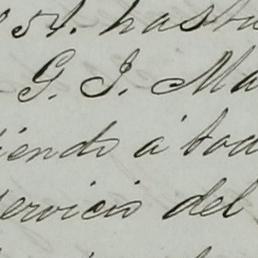 54. hasta
G. J. Ma
iendo á tod
servicio del